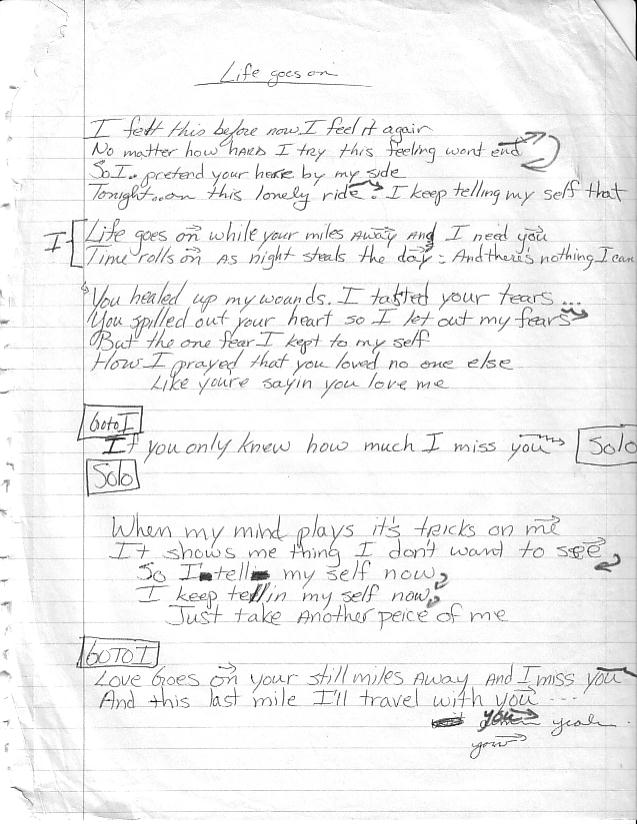 Life goes on
I felt this before now I feel it again
No matter how HARD I try this feeling wont end
So I.. pretend your here by my side
Tonight...on this lonely ride. I keep telling my self that
I
Life goes on while your miles AWAY And I need you
Time rolls on As night steals the day: And there's nothing I can
You healed up my wounds. I tasted your tears ...
You spilled out your heart so I let out my fears
But the one fear I kept to my self
How I prayed that you loved no one else
Like youre sayin you love me
Goto I
If you only knew how much I miss you Solo
Solo
When my mind plays it's tricks on me
It shows me thing I don't want to see
So I tell my self now
I keep tellin my self now
Just take Another peice of me
GOTO I
Love Goes on your still miles AWAY And I miss you
And this last mile I'll travel with you ...
you yeah
you